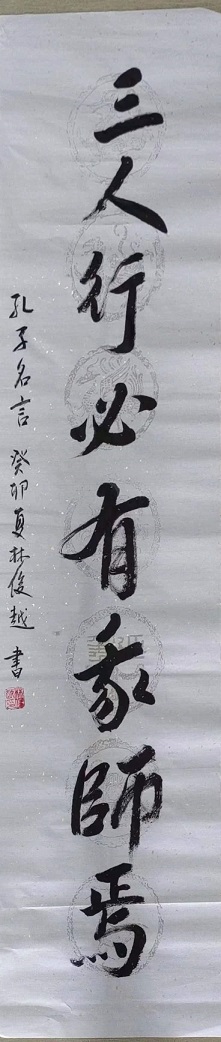 三人行必有我師焉
孔子名言 癸卯夏林俊越書